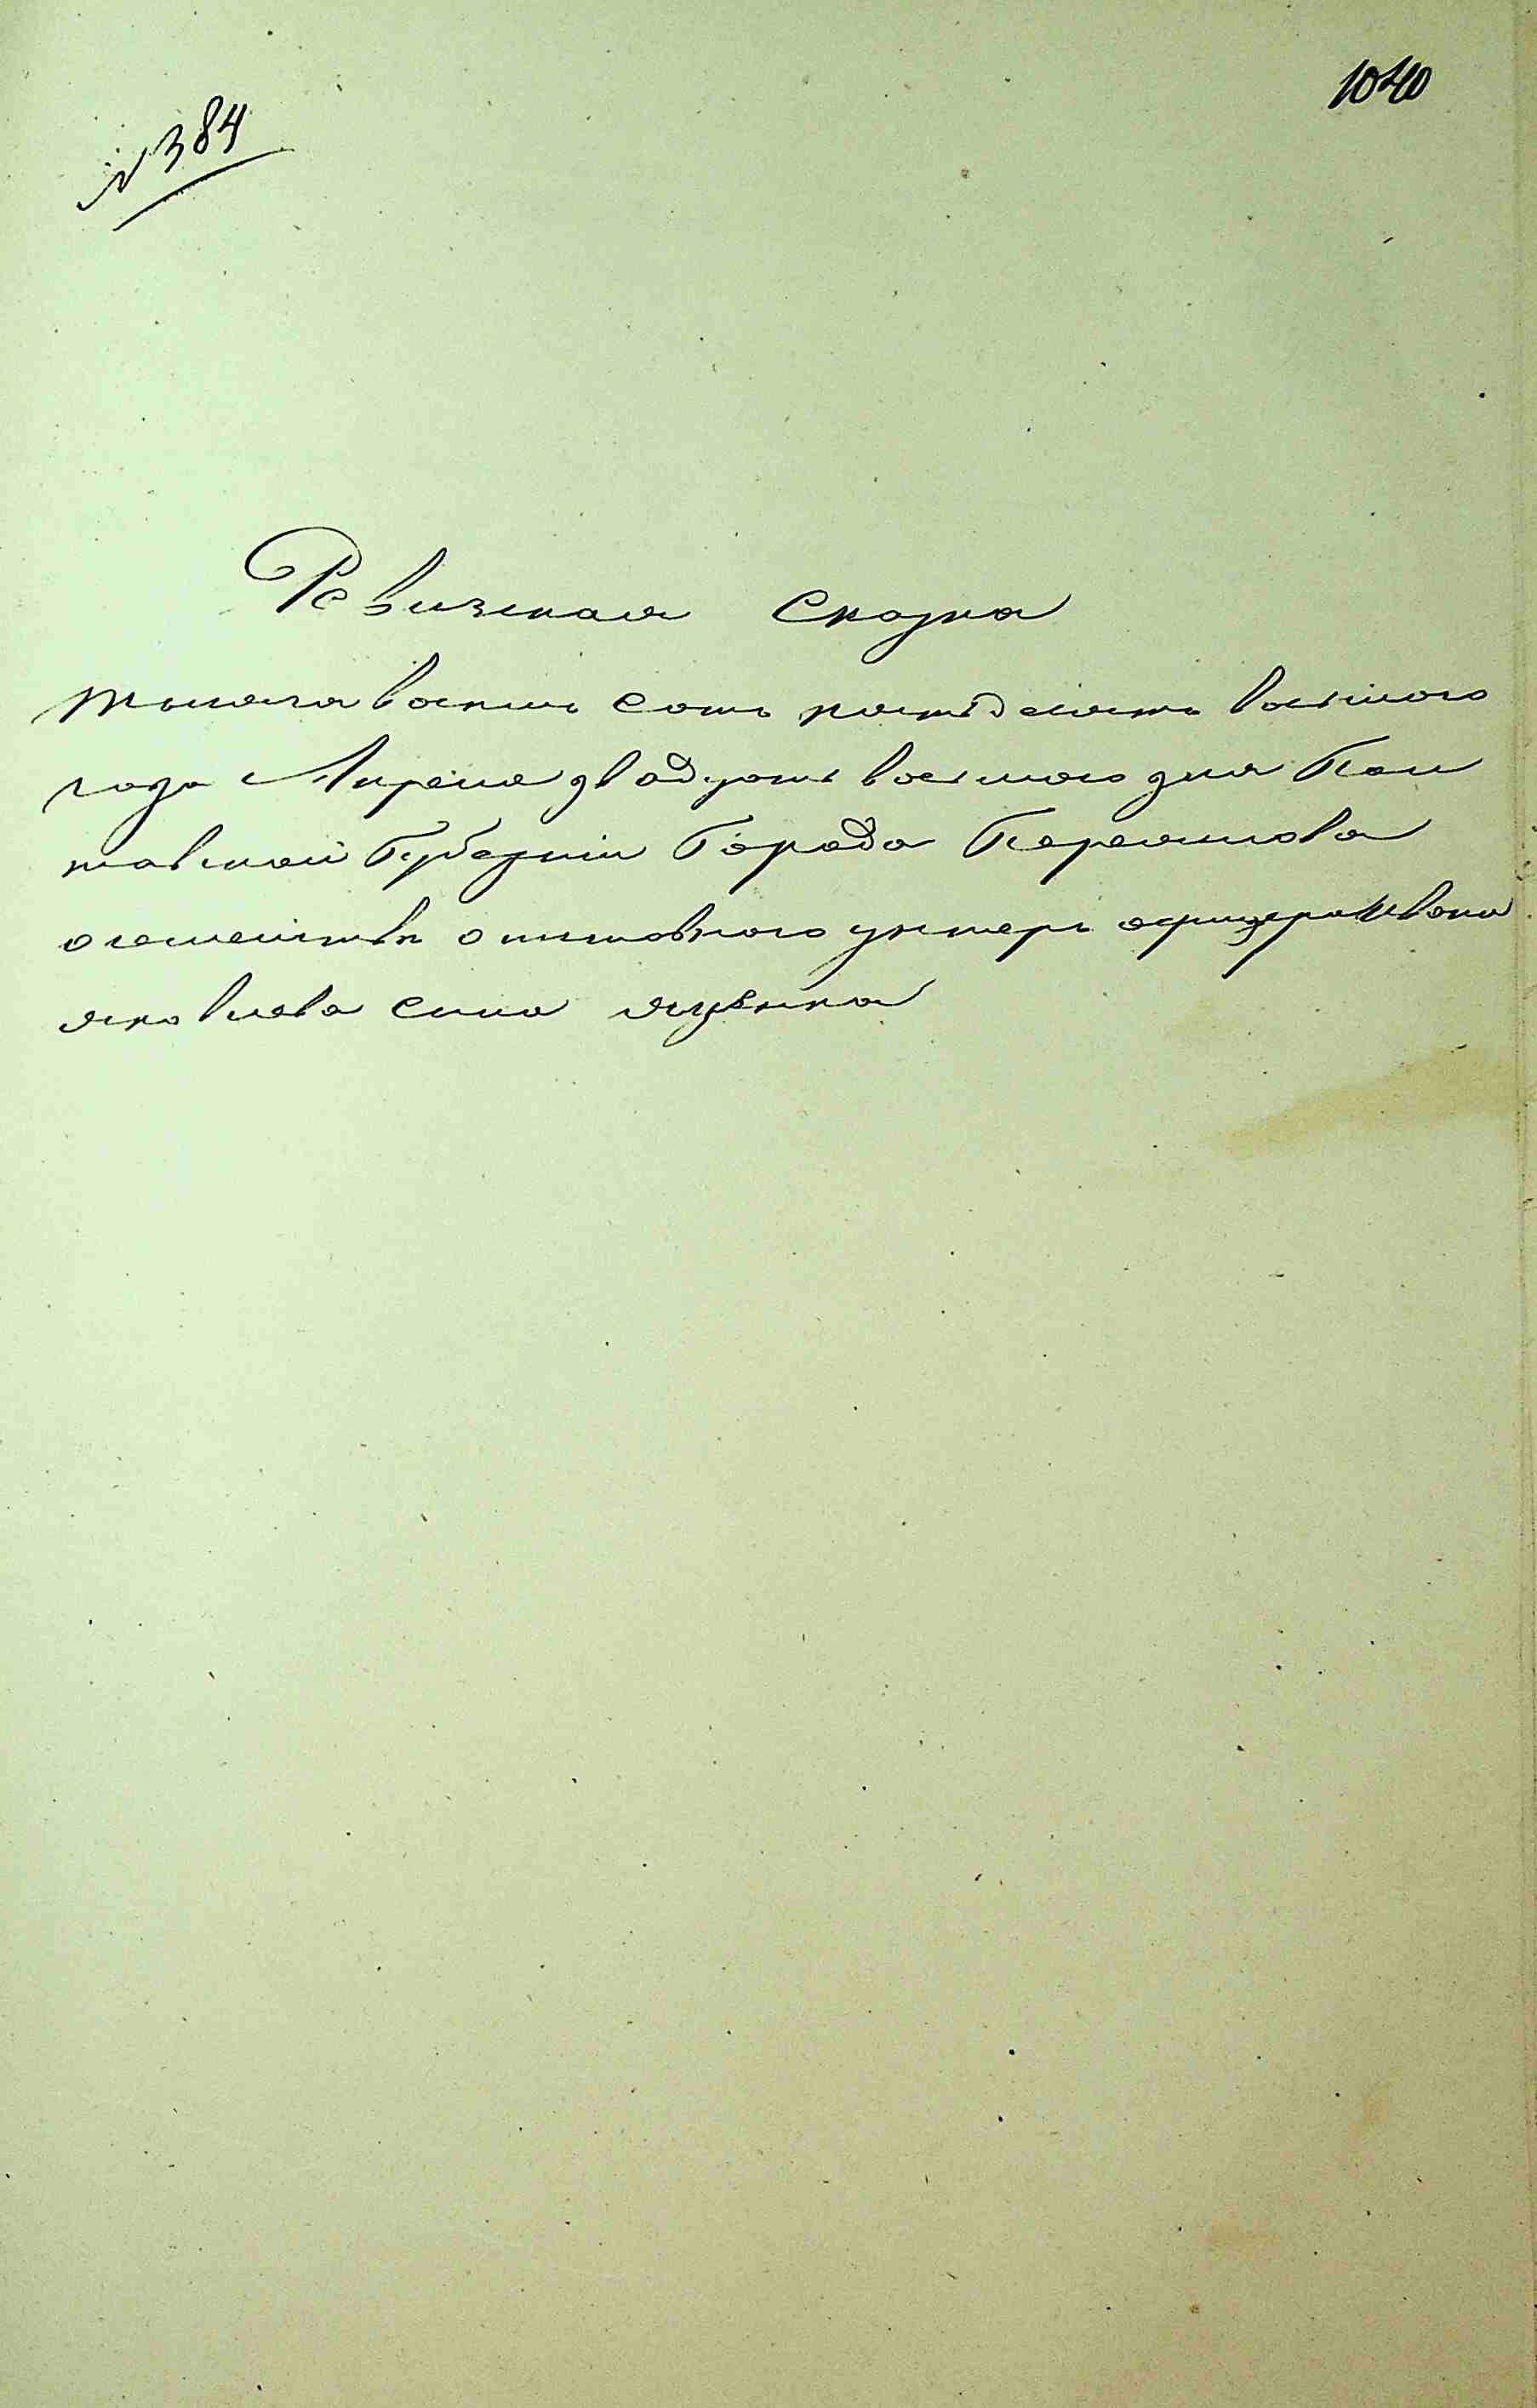 1040
№ 384
Ревизская Сказка
тысяча восемь сотъ пятдесятъ восьмого
года Апреля двадцать восьмого дня Пол
тавской Губерніи Города Переяслова
о семействѣ унтеръ офицера Ивана
яковлева сина яценка